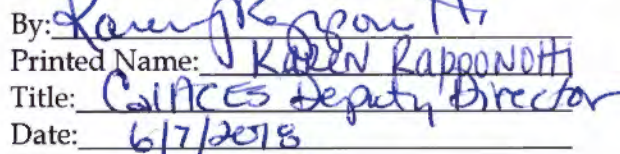 By: Karen Rapponotti
Printed Name: KAREN RAPPONOTTI
Title: CalACES Deputy Director
Date: 6/7/2018